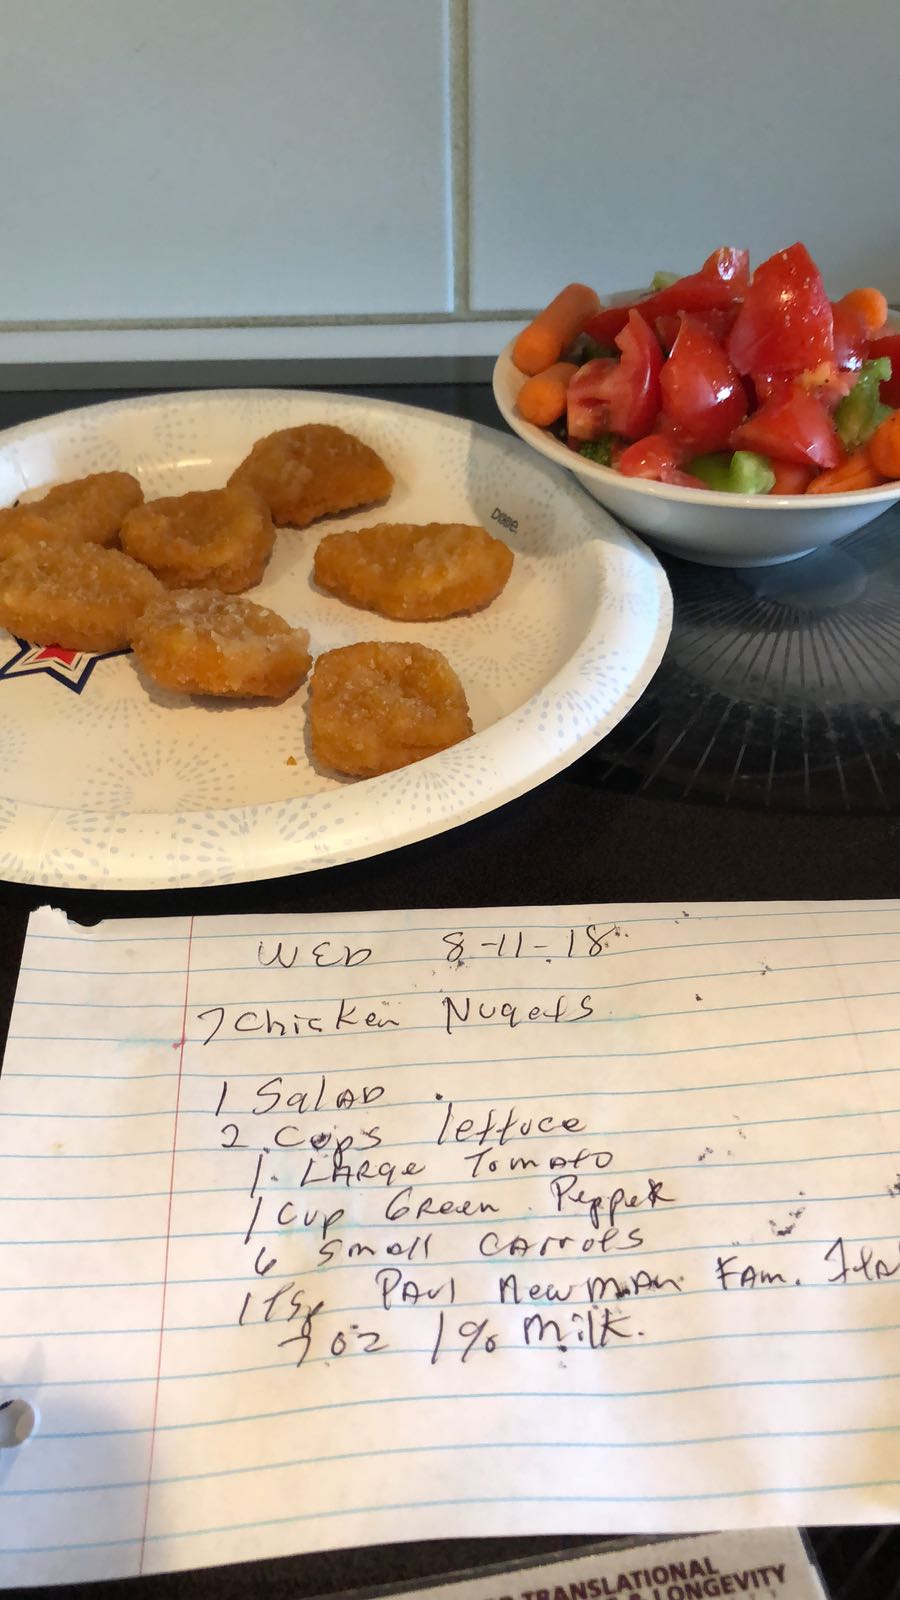 DIXIE
WED 8-11-18
7 Chicken Nugets
1 Salad
2 Cups lettuce
1 Large Tomato
1 Cup Green Pepper
6 Small Carrots
1 Tsp Paul Newman Fam. Ita
7 oz 1% Milk.
TRANSLATIONAL
& LONGEVITY